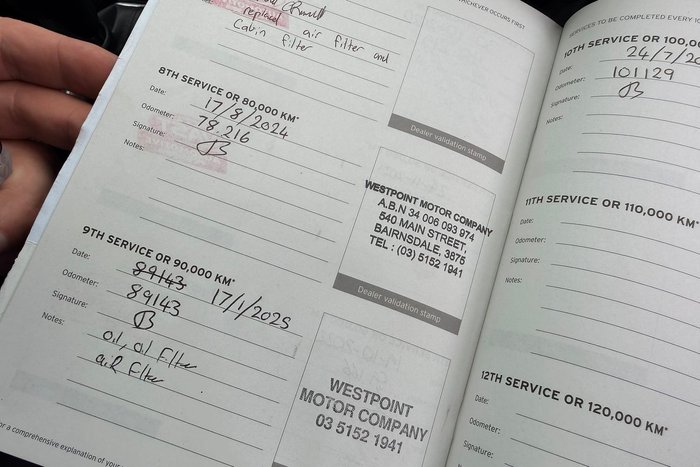 replaced air filter and
Cabin filter
WHICHEVER OCCURS FIRST
Dealer validation stamp
8TH SERVICE OR 80,000 KM*
Date: 17/8/2024
Odometer: 78,216
Signature:
Notes:
WESTPOINT MOTOR COMPANY
A.B.N 34 006 093 974
540 MAIN STREET,
BAIRNSDALE, 3875
TEL : (03) 5152 1941
Dealer validation stamp
9TH SERVICE OR 90,000 KM*
Date: 89143 17/1/2025
Odometer: 89143
Signature:
Notes: oil, oil Filter
aiR Filter
WESTPOINT
MOTOR COMPANY
03 5152 1941
or a comprehensive explanation of your
SERVICES TO BE COMPLETED EVERY 10
10TH SERVICE OR 100,00
Date: 24/7/20
Odometer: 101129
Signature:
Notes:
11TH SERVICE OR 110,000 KM*
Date:
Odometer:
Signature:
Notes:
12TH SERVICE OR 120,000 KM*
Date:
Odometer:
Signature: